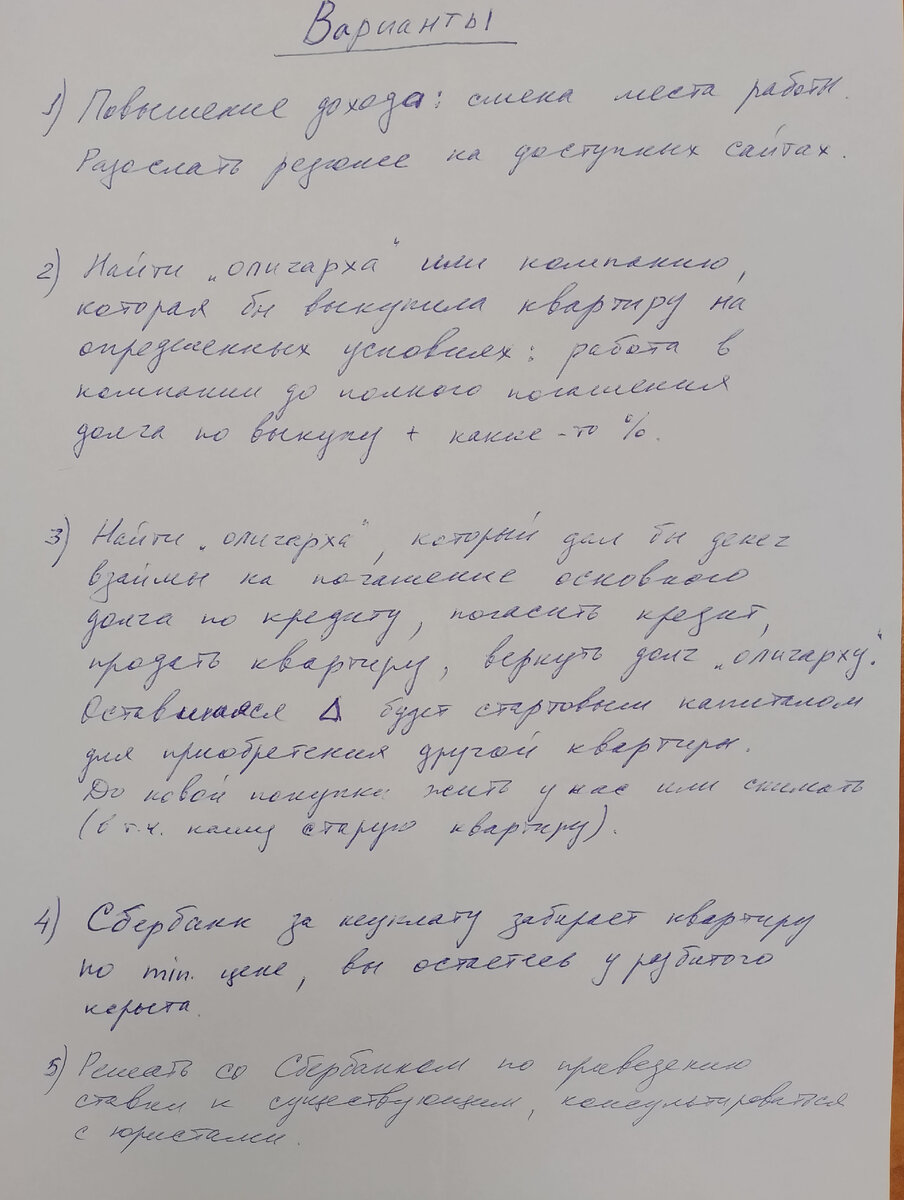 Варианты
1) Повышение дохода: смена места работы.
Разослать резюме на доступных сайтах.
2) Найти „олигарха“ или компанию,
которая бы выкупила квартиру на
определенных условиях: работа в
компании до полного погашения
долга по выкупу + какие-то %.
3) Найти „олигарха“, который дал бы денег
взаймы на погашение основного
долга по кредиту, погасить кредит,
продать квартиру, вернуть долг „олигарху“.
Оставшаяся Δ будет стартовым капиталом
для приобретения другой квартиры.
До новой покупки жить у нас или снимать
(в т.ч. нашу старую квартиру).
4) Сбербанк за неуплату забирает квартиру
по min. цене, вы остаетесь у разбитого
корыта.
5) Решать со Сбербанком по приведению
ставки к существующим, консультироваться
с юристами.